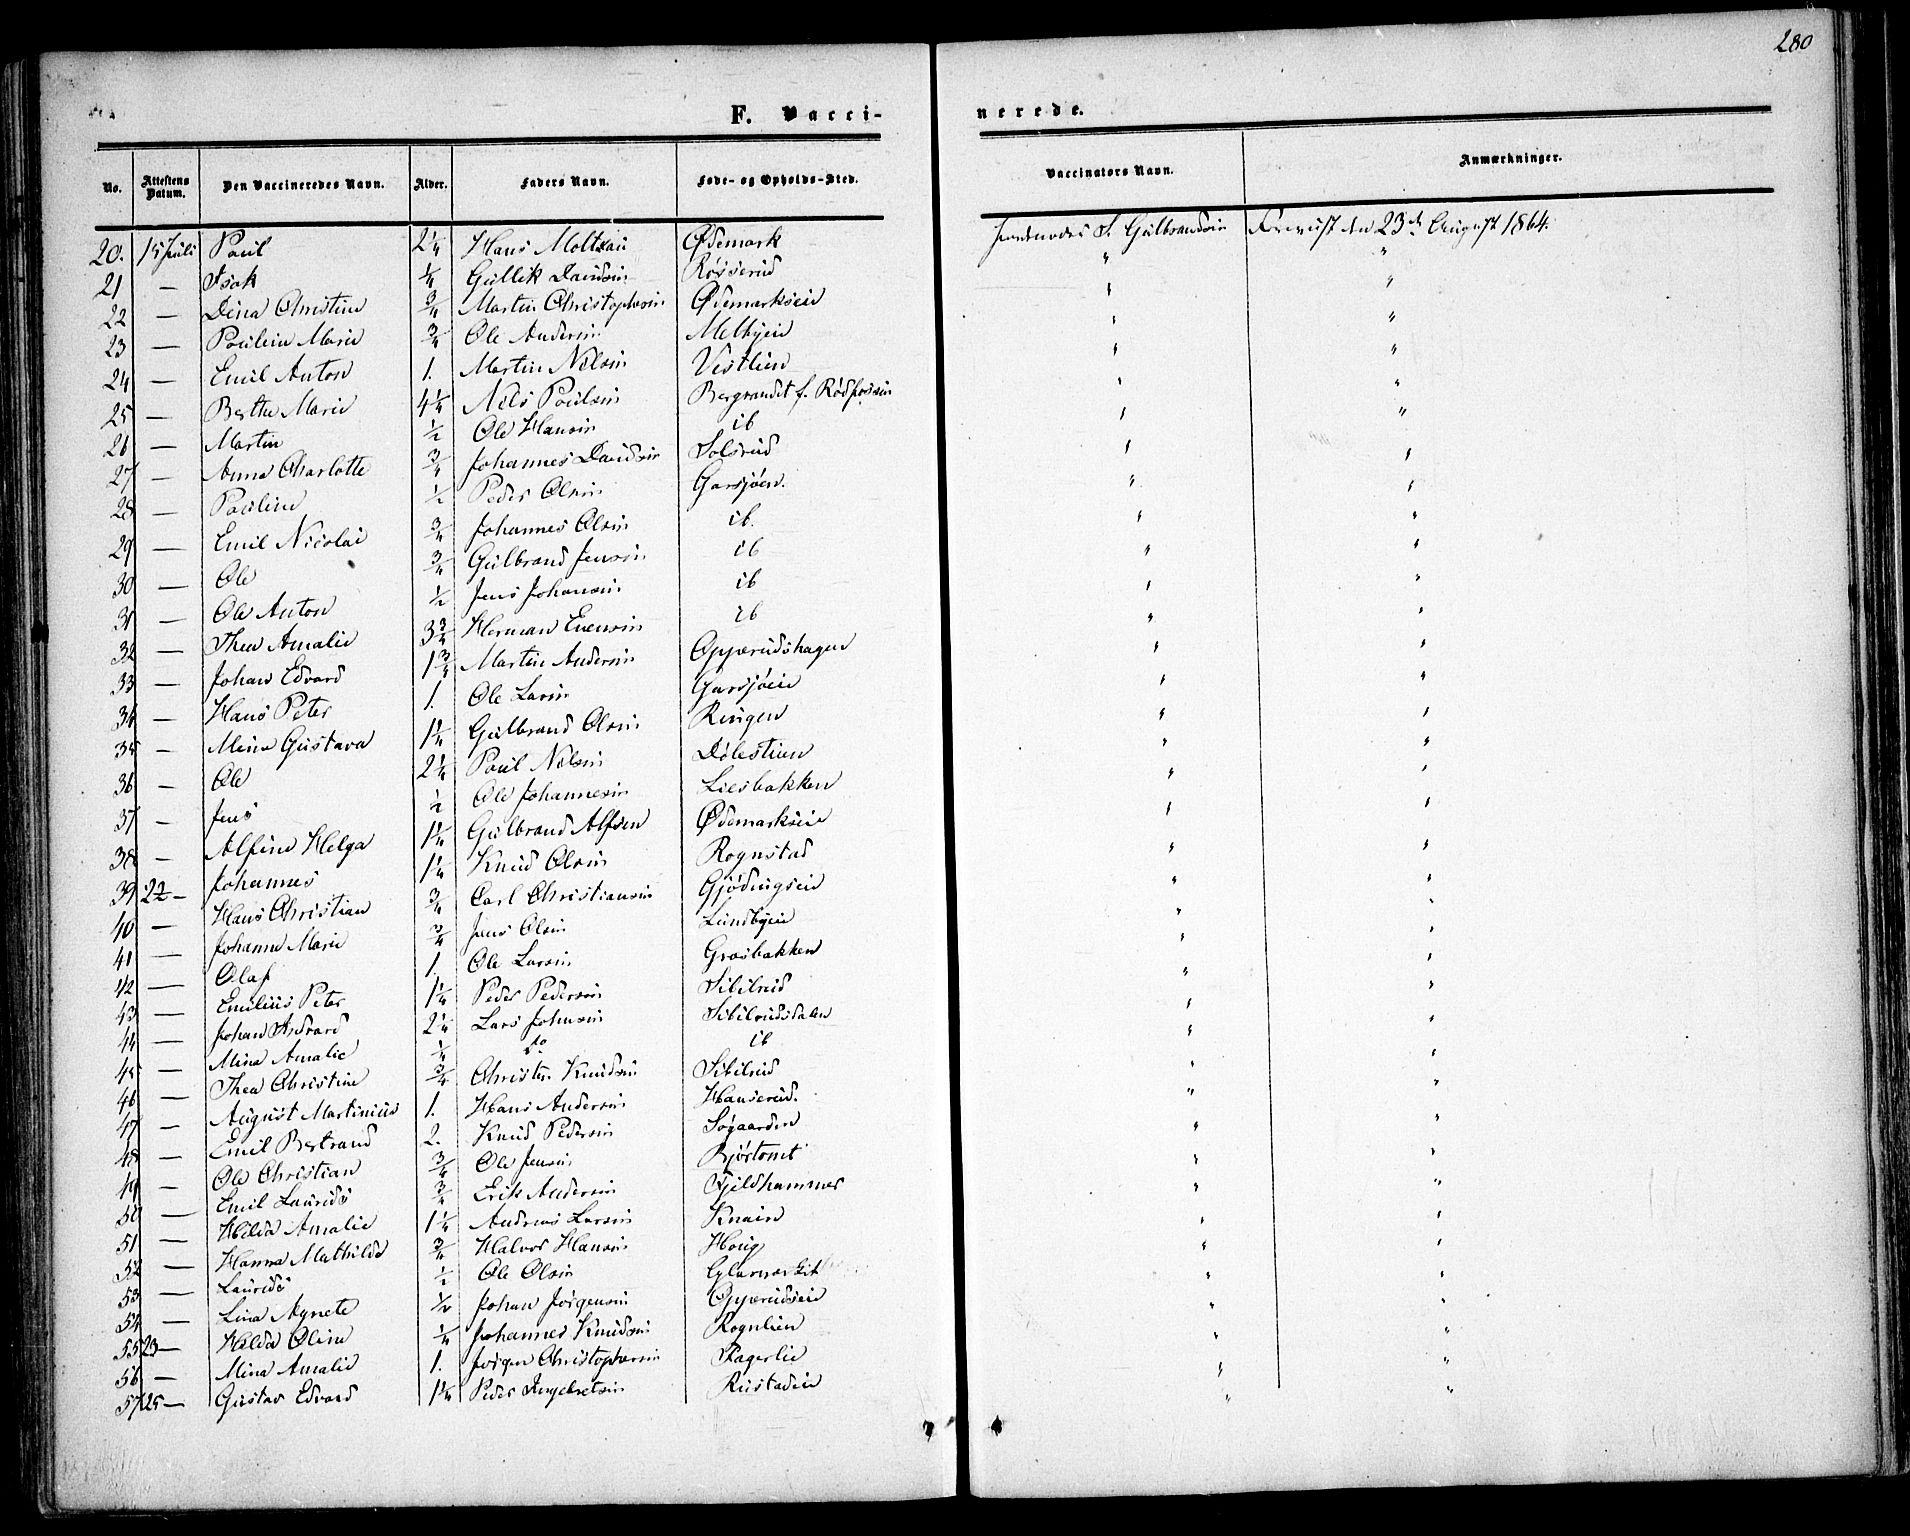 280
F. Vaccinerede.
No. Attestens Datum. Den Vaccineredes Navn. Alder. Faders Navn. Føde- og Opholds-Sted. Vaccinators Navn. Anmærkninger.
20. 15 Juli Paul 2 1/4 Hans Moltzau Ødemark S. Gulbrandsen den 23de August 1864.
21 — Isak 1/4 Gullik Davidsen Røsserud " "
22 — Dina Christine 3/4 Martin Christophersen Ødemarkseie " "
23 — Pauline Marie 3/4 Ole Andersen Melbyeie " "
24 — Emil Anton 1. Martin Nilsen Vestlien " "
25 — Berthe Marie 4 1/4 Nils Paulsen Bergrandet f. Rødfossen " "
26 — Martin 1/2 Ole Hansen ib " "
27 — Anna Charlotte 3/4 Johannes Davidsen Solsrud " "
28 — Pauline 1/2 Peder Olsen Garsjøen. " "
29 — Emil Nicolai 3/4 Johannes Olsen ib. " "
30 — Ole 3/4 Gulbrand Jensen ib " "
31 — Ole Anton 1/2 Jens Johansen ib " "
32 — Thea Amalie 3 3/4 Herman Evensen ib " "
33 — Johan Edvard 1 3/4 Martin Andersen Opperudshagen " "
34 — Hans Peter 1. Ole Larsen Garsjøeie " "
35 — Mina Gustava 1 1/4 Gulbrand Olsen Ringen " "
36 — Ole 2 1/4 Paul Nilsen Dølestuen " "
37 — Jens 1/2 Ole Johannesen Liesbakken " "
38 — Alfine Helga 1 1/4 Gulbrand Alfsen Ødemarkseie " "
39 22 — Johannes 1 1/4 Knud Olsen Rognstad " "
40 — Hans Christian 3/4 Carl Christiansen Gjødingseie " "
41 — Johanne Marie 3/4 Jens Olsen Lundbyeie " "
42 — Olaf 1. Ole Larsen Grasbakken " "
43 — Emilius Peter 1 1/4 Peder Pedersen Sibilrud " "
44 — Johan Edvard 2 1/4 Lars Johnsen Sibilrudsdalen " "
45 — Mina Amalie 1/4 do ib " "
46 — Thea Christine 3/4 Christen Knudsen Sibilrud " "
47 — August Martinius 1. Hans Andersen Hanserud. " "
48 — Emil Bertrand 2. Knud Pedersen Søgaarden " "
49 — Ole Christian 3/4 Ole Jensen Bjørtomt " "
50 — Emil Laurids 3/4 Erik Andersen Fjeldhammer " "
51 — Hilda Amalie 1 1/4 Andreas Larsen Knaien " "
52 — Hanna Mathilde 3/4 Halvor Hansen Houg " "
53 — Lauride 1/2 Ole Olsen " "
54 — Lina Agnete 1/2 Johan Jørgensen Opperudseie " "
55 23 — Hilda Oline 1/4 Johannes Knudsen Rognlien " "
56 — Mina Amalie 1. Jørgen Christophersen Fagerlie " "
57 25 — Gustav Edvard 1 1/4 Peder Ingebretsen Rustadeie " "